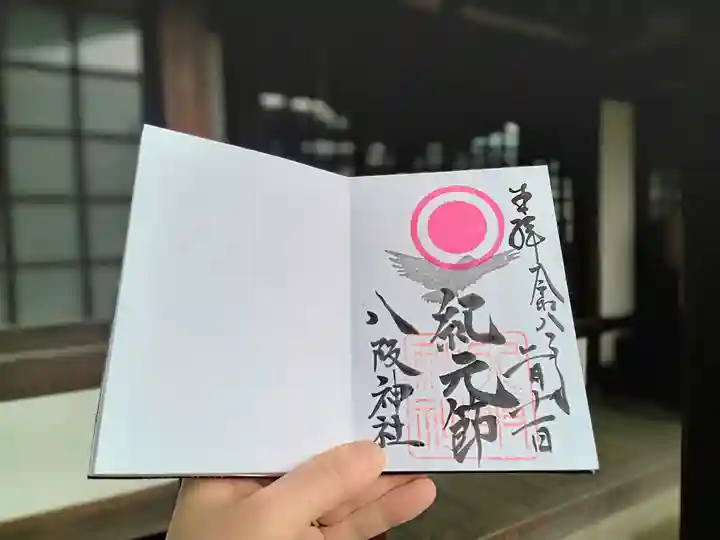 奉拝 令和八年二月十一日
紀元節
八阪神社